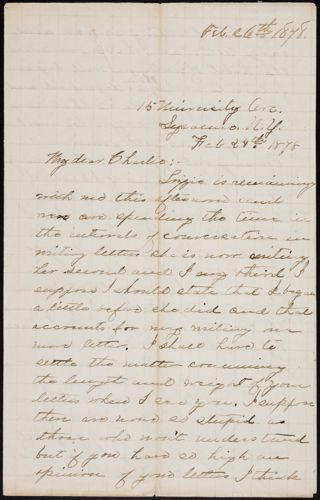 Feb. 26th 1878.
15 University Ave.
Syracuse N.Y.
Feb 24th 1878
My dear Charlie:-
Lizzie is remaining
with me this afternoon and
we are spending the time in
the intervals of conversation in
writing letters she is now writing
her second and I my third I
suppose I should state that I began
a little before she did and that
accounts for my writing one
more letter. I shall have to
settle the matter concerning
the length and weight of your
letters when I see you. I suppose
there are none so stupid as
those who won't understand
but if you have so high an
opinion of your letters I think